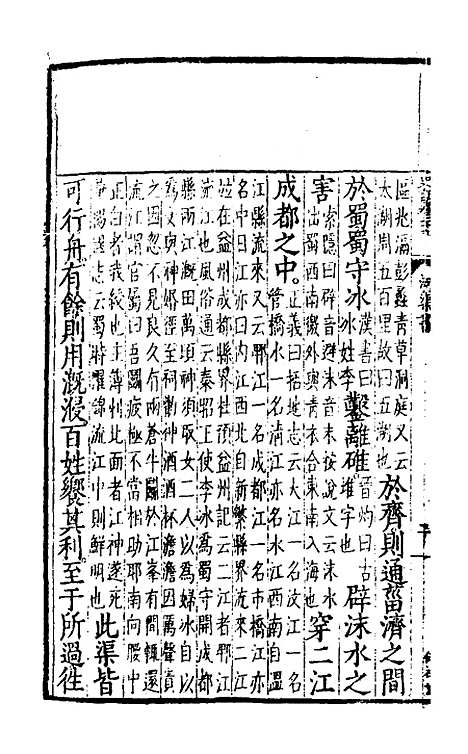 區兆滆彭蠡青草洞庭又云
太湖周五百里故曰五湖也
於齊則通菑濟之閒
於蜀蜀守冰漢書曰冰姓李鑿離碓晉灼曰古堆字也辟沫水之
害索隱曰辟音避沫音末按說文云沫水出蜀西南徼外與青衣合東南入海也穿二江
成都之中。正義曰括地志云大江一名汶江一名管橋水一名清江亦名水江西南自溫
江縣流來又云郫江一名成都江一名市橋江亦
名中日江亦曰內江西北自新繁縣界流來二江
並在益州成都縣界任預益州記云二江者郫江
流江也風俗通云秦昭王使李冰為蜀守開成都
縣兩江溉田萬頃神須取女二人以為婦冰自以
為女與神婚徑至祠勸神酒酒杯澹澹因厲聲責
之因忽不見良久有兩蒼牛鬬於江岸有間輒還
流江謂官屬曰吾鬬疲極不當相助耶南向腰中
正白者我綬也主簿刺北面者江神遂死
華陽國志云蜀時濯錦流江中則鮮明也
此渠皆
可行舟。有餘則用溉浸百姓饗其利。至于所過往